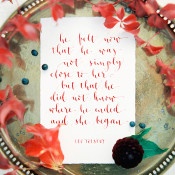 he felt now
that he was
not simply
close to her
but that he
did not know
where he ended
and she began
LEO TOLSTOY